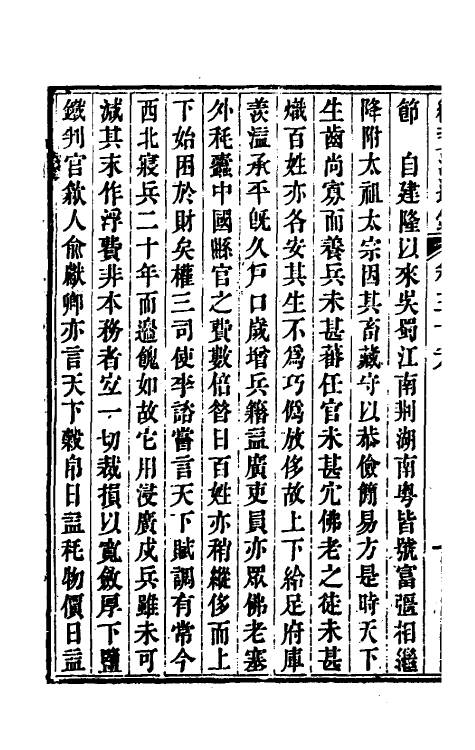 節　自建隆以來吳蜀江南荆湖南粵皆號富彊相繼
降附太祖太宗因其畜藏守以恭儉簡易方是時天下
生齒尚寡而養兵未甚蕃任官未甚冗佛老之徒未甚
熾百姓亦各安其生不爲巧僞放侈故上下給足府庫
羨溢承平旣久戸口歲增兵籍益廣吏員亦眾佛老塞
外秏蠹中國縣官之費數倍昝日百姓亦稍縱侈而上
下始困於財矣權三司使李諮嘗言天下賦調有常今
西北寢兵二十年而邉餽如故它用浸廣戍兵雖未可
减其末作浮費非本務者宐一切裁損以寬斂厚下鹽
鐵判官歙人俞獻卿亦言天下穀帛日益秏物價日益